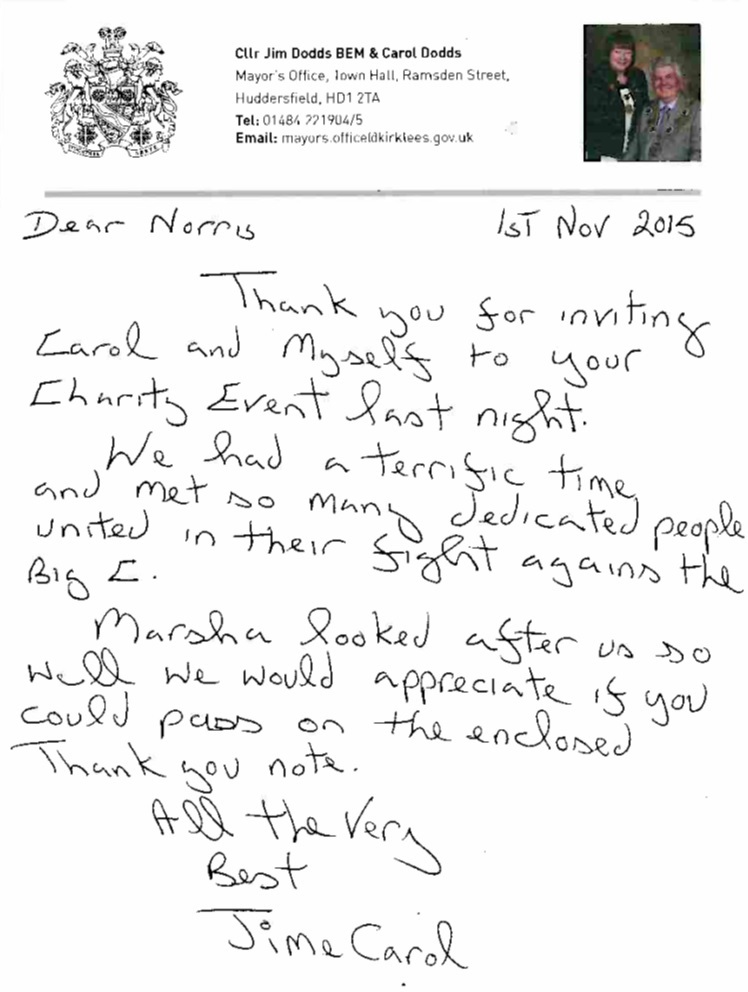 Cllr Jim Dodds BEM & Carol Dodds
Mayor's Office, Town Hall, Ramsden Street,
Huddersfield, HD1 2TA
Tel: 01484 221904/5
Email: mayors.office@kirklees.gov.uk
Dear Norris 1ST Nov 2015
Thank you for inviting
Carol and Myself to your
Charity Event last night.
We had a terrific time
and met so many dedicated people
united in their fight agains the
Big C.
Marsha looked after us so
well we would appreciate if you
could pass on the enclosed
Thank you note.
All the Very
Best
Jim e Carol